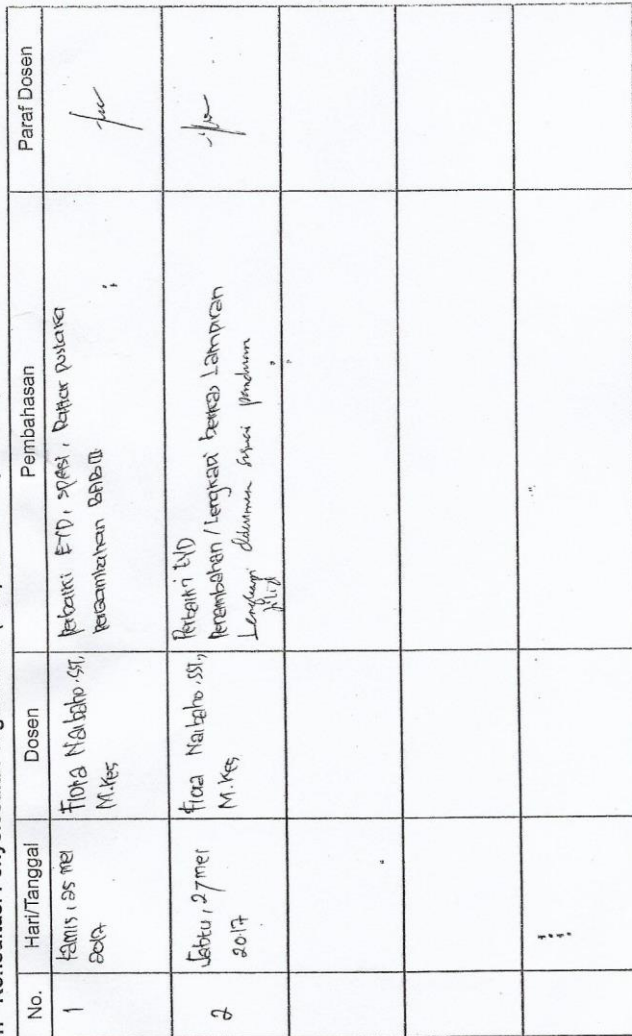 No.
Hari/Tanggal
Dosen
Pembahasan
Paraf Dosen
1
Kamis, 25 Mei
2017
Flora Naibaho. SST,
M.Kes
Perbaiki EYD, spasi, Daftar pustaka
penambahan BAB III
2
Sabtu, 27 Mei
2017
Flora Naibaho. SST,
M.Kes
Perbaiki EYD
Penambahan / Lengkapi berkas Lampiran
Lengkapi dokumen sesuai panduan